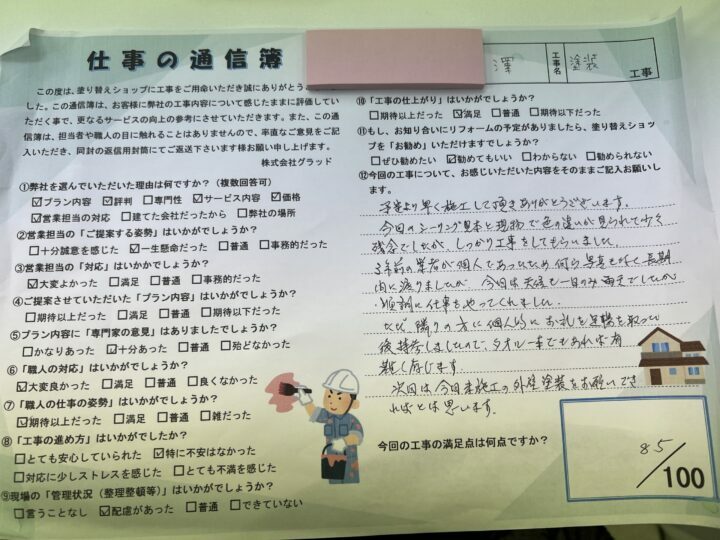 仕事の通信簿
澤
工事名
塗装
工事
この度は、塗り替えショップに工事をご用命いただき誠にありがとう
した。この通信簿は、お客様に弊社の工事内容について感じたままに評価してい
ただく事で、更なるサービスの向上の参考にさせていただきます。また、この通
信簿は、担当者や職人の目に触れることはありませんので、率直なご意見をご記
入いただき、同封の返信用封筒にてご返送下さいます様お願い申し上げます。
株式会社グラッド
①弊社を選んでいただいた理由は何ですか?(複数回答可)
☑プラン内容 ☑評判 □専門性 ☑サービス内容 ☑価格
☑営業担当の対応 □建てた会社だったから □弊社の場所
②営業担当の「ご提案する姿勢」はいかがでしょうか?
□十分誠意を感じた ☑一生懸命だった □普通 □事務的だった
③営業担当の「対応」はいかかでしょうか?
☑大変よかった □満足 □普通 □事務的だった
④ご提案させていただいた「プラン内容」はいかがでしょうか?
☑期待以上だった □満足 □普通 □期待以下だった
⑤プラン内容に「専門家の意見」はありましたでしょうか?
□かなりあった ☑十分あった □普通 □殆どなかった
⑥「職人の対応」はいかがでしょうか?
☑大変良かった □満足 □普通 □良くなかった
⑦「職人の仕事の姿勢」はいかがでしょうか?
☑期待以上だった □満足 □普通 □雑だった
⑧「工事の進め方」はいかがでしたか?
□とても安心していられた ☑特に不安はなかった
□対応に少しストレスを感じた □とても不満を感じた
⑨現場の「管理状況(整理整頓等)」はいかがでしょうか?
□言うことなし ☑配慮があった □普通 □できていない
⑩「工事の仕上がり」はいかがでしょうか?
□期待以上だった ☑満足 □普通 □期待以下だった
⑪もし、お知り合いにリフォームの予定がありましたら、塗り替えショッ
プを「お勧め」いただけますでしょうか?
□ぜひ勧めたい ☑勧めてもいい □わからない □勧められない
⑫今回の工事について、お感じいただいた内容をそのままご記入お願いし
ます。
予定より早く施工して頂きありがとうございます。
今回のシーリング見本と現物で色の違いが見られて少々
残念でしたが、しっかり工事をしてもらいました。
前の業者が個人であったため、何ら写真もなくて長期
間に渡りましたが、今回は天候も一日のみ雨天でしたが
順調に仕事をやってくれました。
なお、隣りの方に個人的にお礼を
後持参しましたので、タオル一本でもあれば有
難く感じます。
次回は今回未施工の外壁塗装をお願いでき
ればとは思います。
今回の工事の満足点は何点ですか?
85
/100